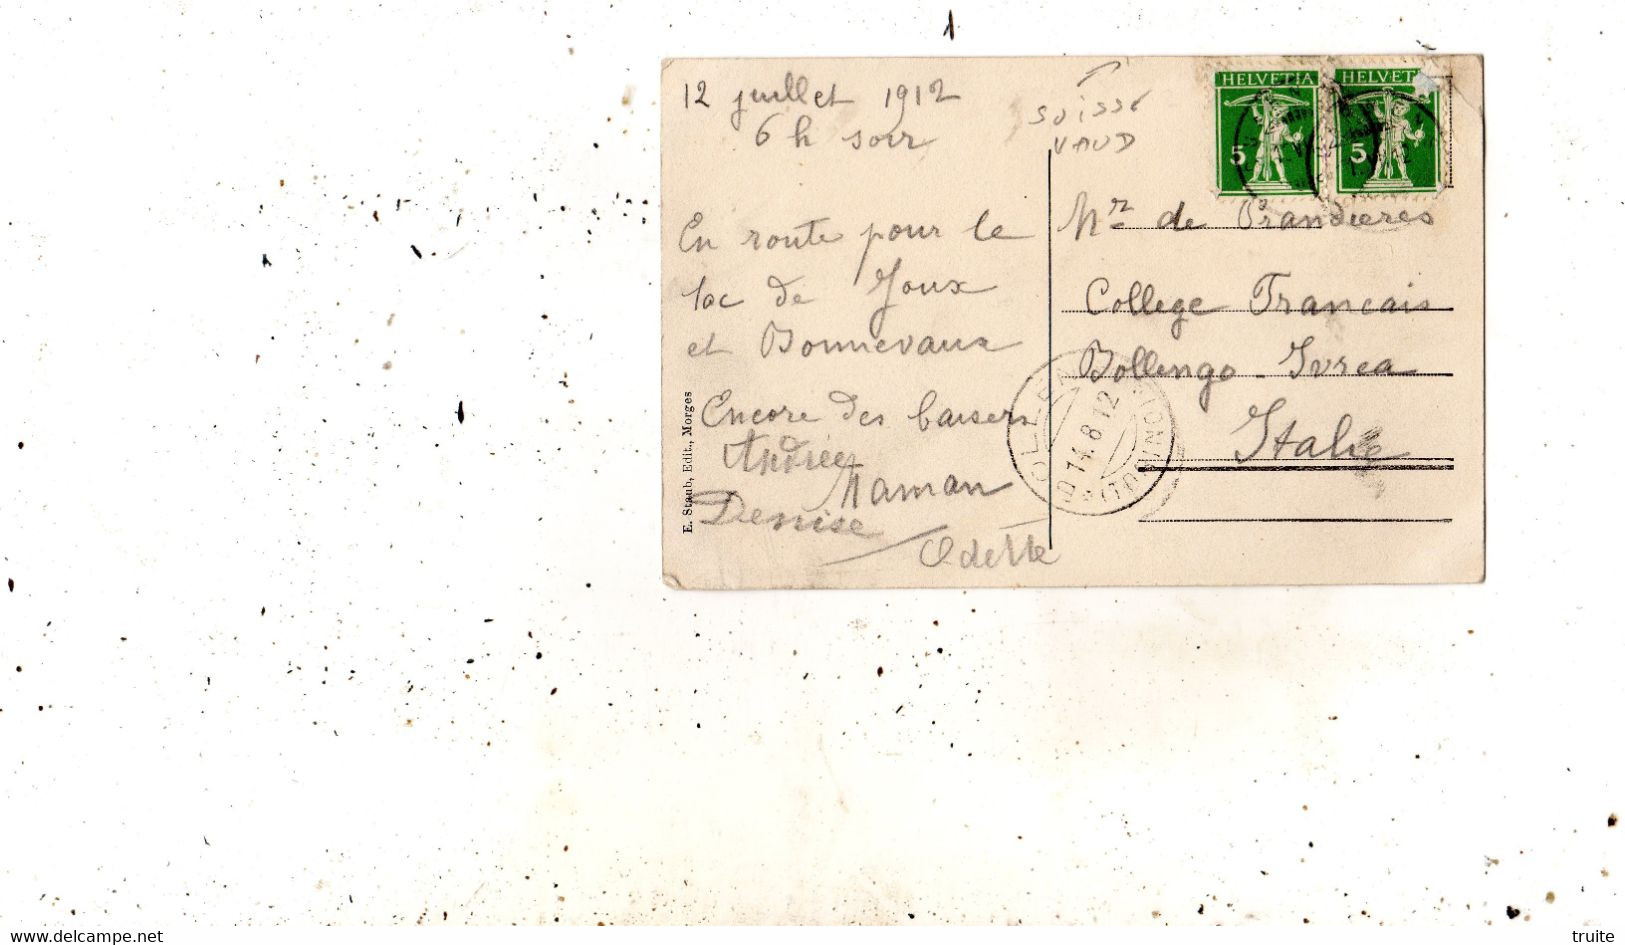 12 juillet 1912
6 h soir
En route pour le
lac de Joux
et Bonnevaux
Encore des baisers
Andrée
Maman
Denise
Odette
E. Staub, Edit., Morges
SUISSE
VAUD
HELVETIA
5
HELVET
5
Mr de Prandieres
College Francais
Bollengo - Ivrea
Italie
14.8.12
www.delcampe.net
truite